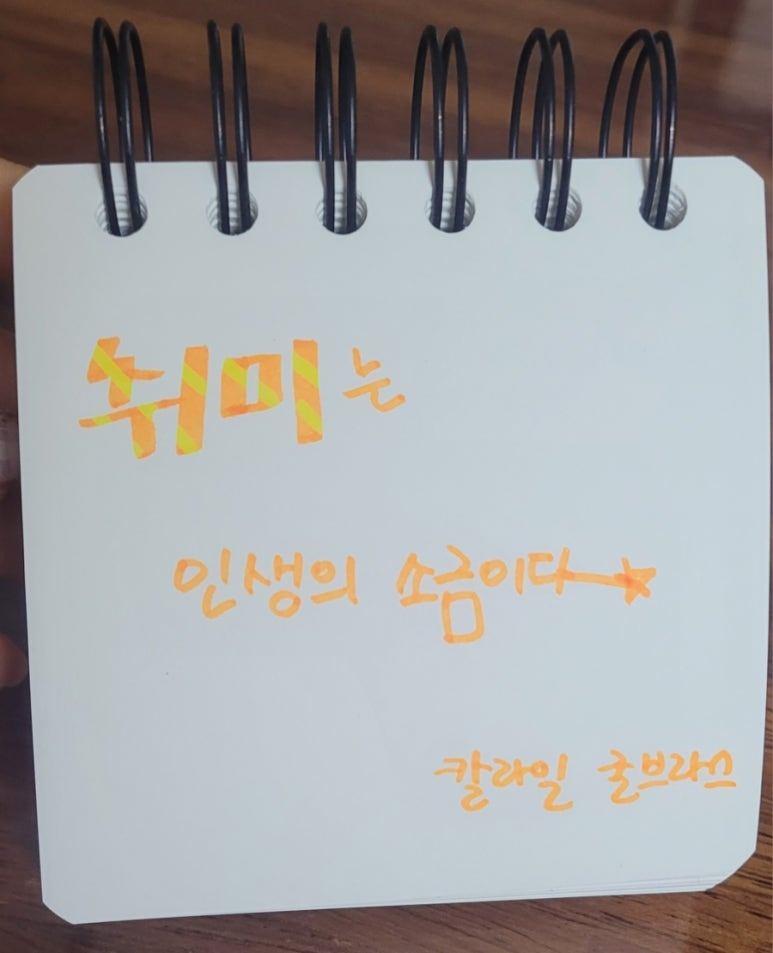 취미는
인생의 소금이다
칼라일 굴브라스